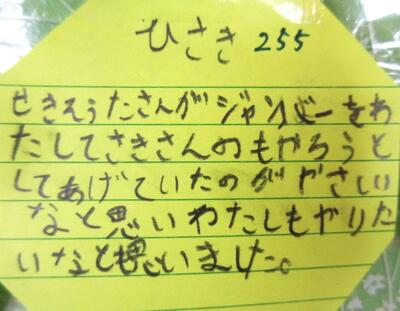 ひさき 255
せきそうたさんがジャンバーをわ
たしてさきさんのもやろうと
してあげていたのがやさしい
なと思いわたしもやりた
いなと思いました。